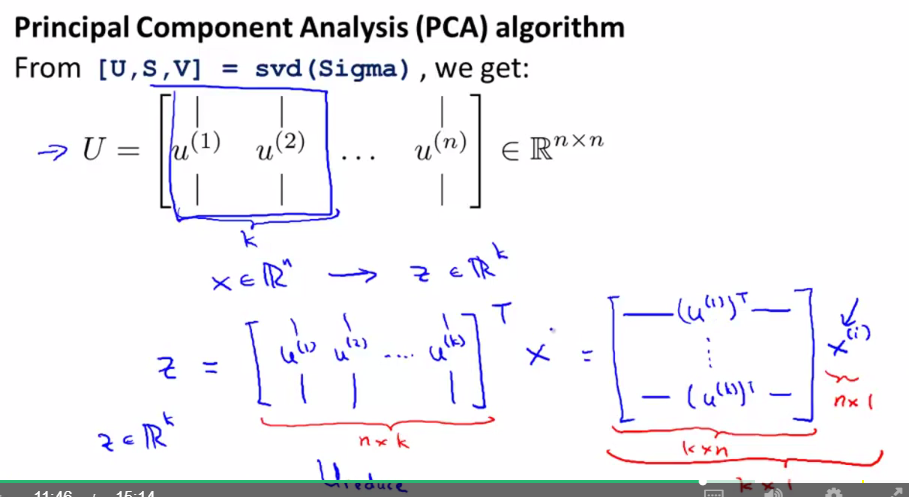 Principal Component Analysis (PCA) algorithm
From [U,S,V] = svd(Sigma), we get:
→ U = [u^(1) u^(2) ... u^(n)] ∈ ℝ^(n×n)
k
x ∈ ℝ^n → z ∈ ℝ^k
z = [u^(1) u^(2) .... u^(k)]^T x = [—(u^(1))^T— ⋮ —(u^(k))^T—] x^(i)
z ∈ ℝ^k
n×k
k×n
n×1
Ureduce
k×1
11:46 / 15:14